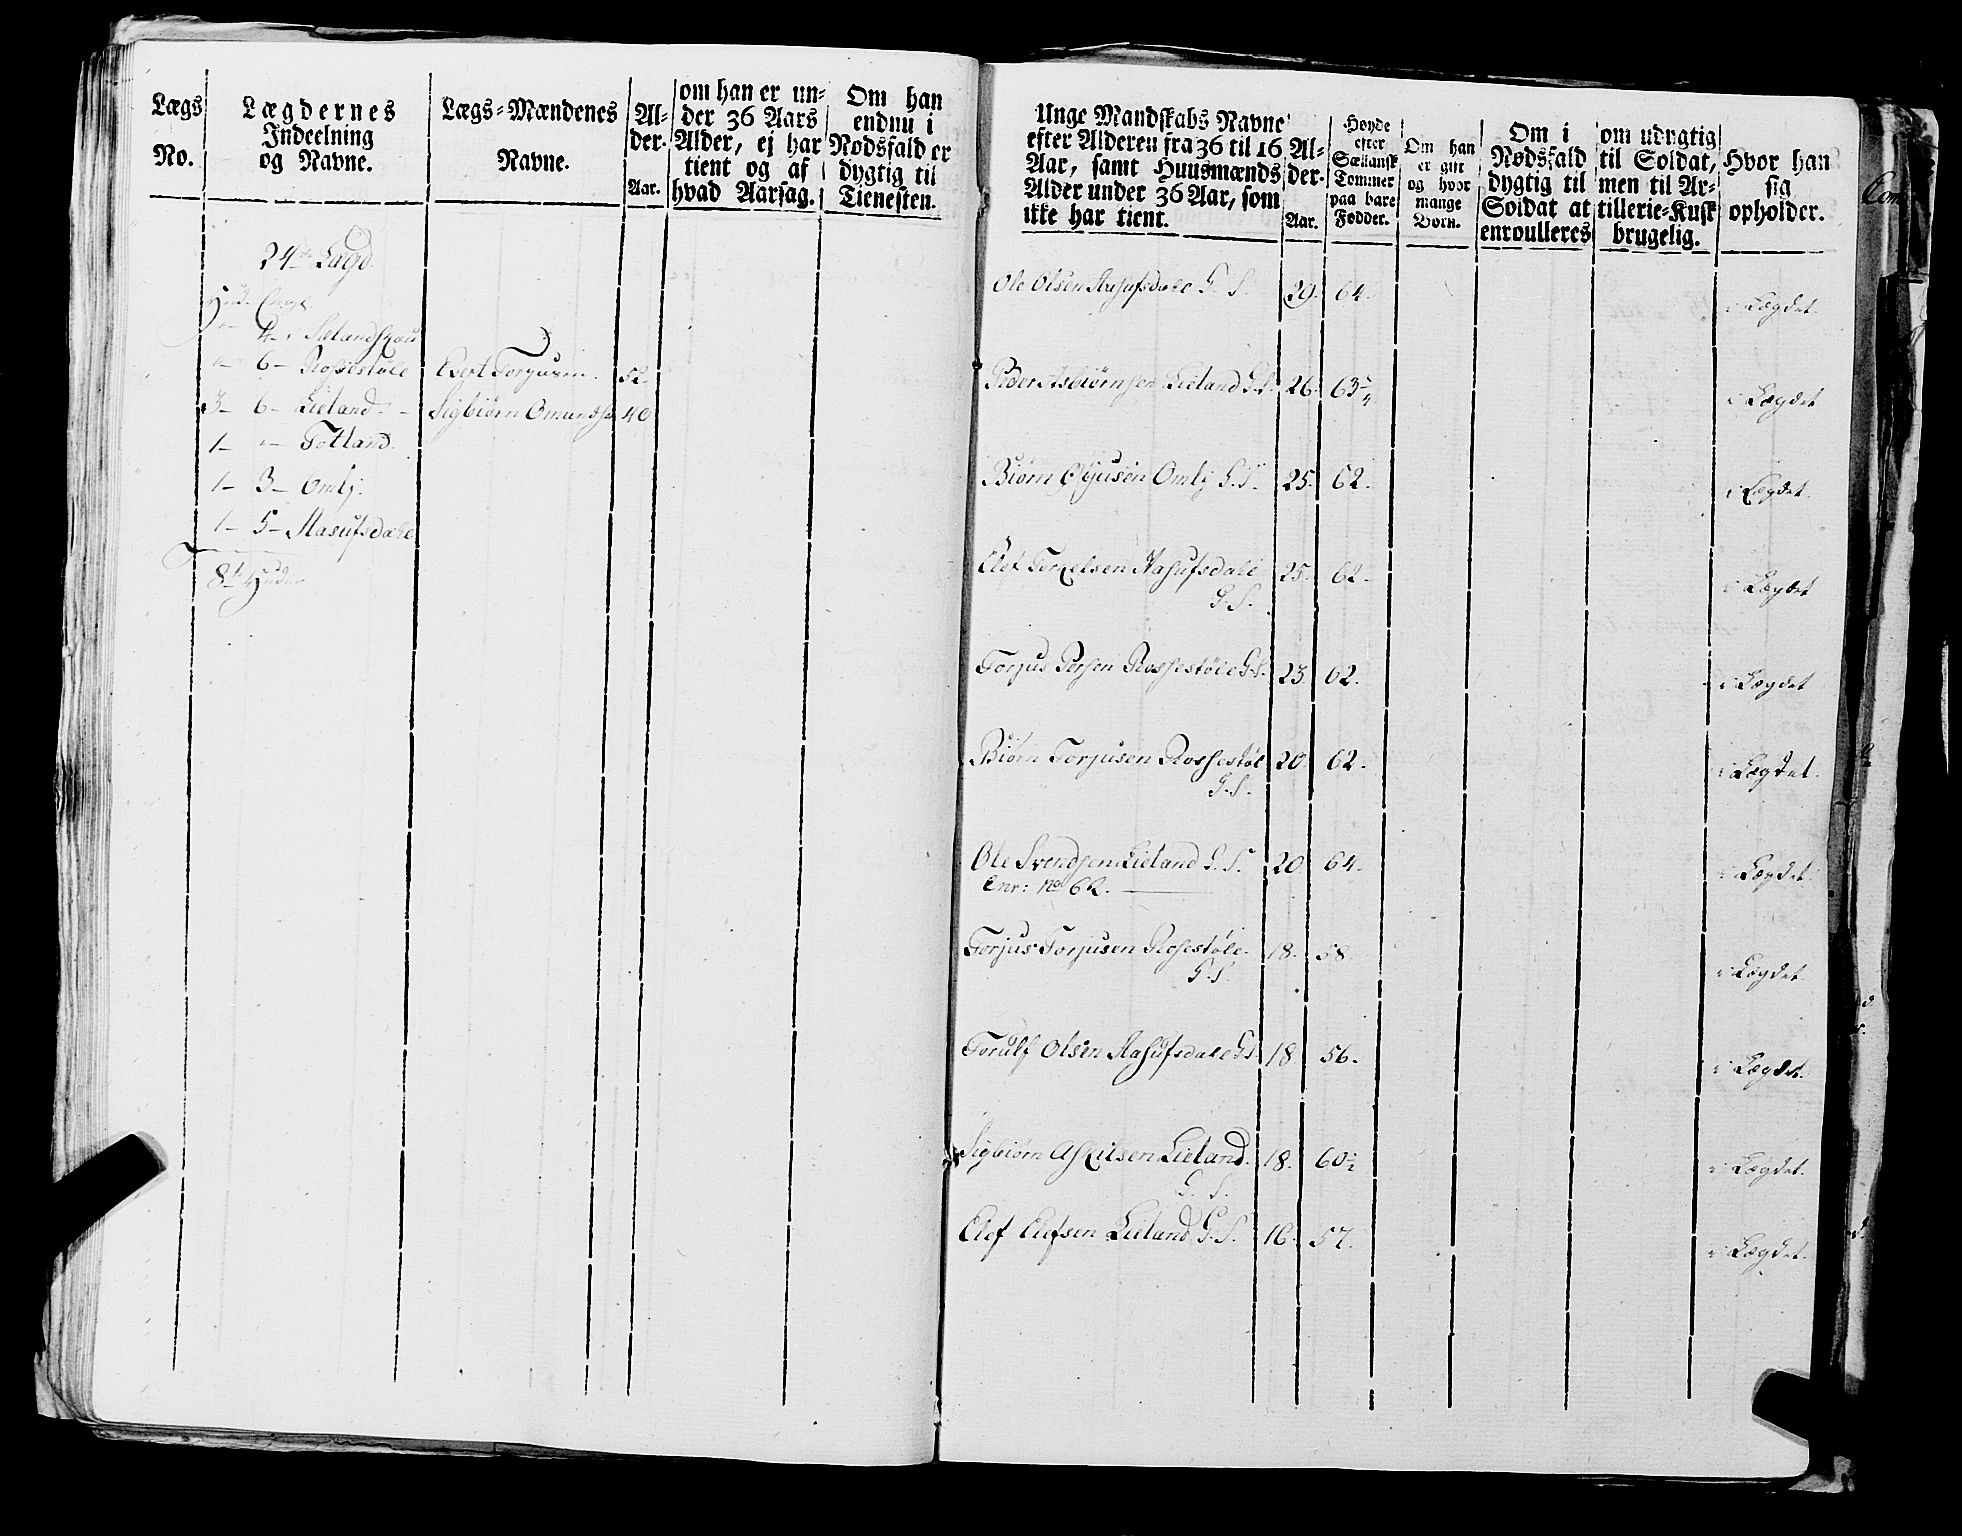 Lægs No.
Lægdernes Indeelning og Navne.
Lægs-Mændenes Navne.
Alder. Aar.
om han er under 36 Aars Alder, ej har tient og af hvad Aarsag.
Om han endnu i Nødsfald er dygtig til Tienesten.
24de Lægd
4 - Sælandskaar
6 - Rossestøle Evert Torgusen. 52.
3 - 6 - Lieland - Sigbiørn Omundsen 40
1 - Totland.
1 - 3 - Omli.
1 - 5 - Aasufsdale
8 1/2 Huder
Unge Mandskabs Navne efter Alderen fra 36 til 16 Aar, samt Huusmænds Alder under 36 Aar, som ikke har tient.
Alder. Aar.
Høyde efter Siællansk Tommer paa bare Fødder.
Om han er gift og hvor mange Børn.
Om i Nødsfald dygtig til Soldat at enroulleres
om udygtig til Soldat, men til Artillerie-Kusk brugelig.
Hvor han sig opholder.
Ole Olsen Aasufsdale G. S. 29. 64. i Lægdet.
Peder Asbiørnsen Lieland G.S. 26. 63 1/4 i Lægdet
Biørn Omlj G.S. 25. 62. i Lægdet.
Elef Torkelsen Aasufsdale 25. 62. i Lægdet
G.S.
Torjus Persen Rossestøle G.S. 23. 62. i Lægdet
Biørn Torjusen Rossestøl 20 62. i Lægdet.
G.S.
Ole Svendsen Lieland G. S. 20 64. i Lægdet.
Enr: No 62.
Torjus Torjusen Rosestøle. 18. 58 i Lægdet.
G.S.
Torulf Olsen Aasufsdale G.S. 18 56. i Lægdet.
Sigbiørn Askilsen Lieland. 18. 60 1/2 i Lægdet.
G. S.
Elef Elefsen Lieland G.S. 16. 57. i Lægdet.